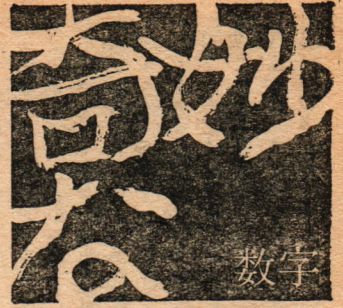 奇妙
な数字